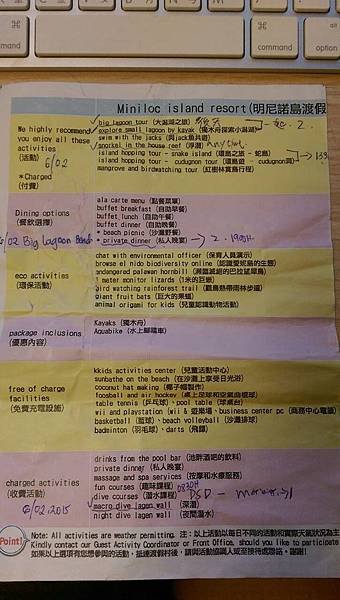 control
option
command
command
option
Miniloc island resort(明尼諾島渡假
We highly recommend
you enjoy all these
activities
(活動) 6/02
*Charged
(付費)
big lagoon tour (大潟湖之旅)
explore small lagoon by kayak (獨木舟探索小潟湖) 2.
swim with the jacks (與jack魚共遊)
snorkel in the house reef (浮潛) Anytime.
island hopping tour - snake island (環島之旅 - 蛇島)
island hopping tour - cudugnon (環島遊 - cudugnon洞)
mangrove and birdwatching tour (紅樹林賞鳥行程)
Dining options
(餐飲選擇)
/02 Big lagoon
ala carte menu (點餐菜單)
buffet breakfast (自助早餐)
buffet lunch (自助午餐)
buffet dinner (自助晚餐)
* beach picnic (沙灘野餐)
* private dinner (私人晚宴) 2.
eco activities
(環保活動)
chat with environmental officer (保育人員演示)
browse el nido biodiversity online (認識愛妮島的生態)
endangered palawan hornbill (瀕臨滅絕的巴拉望犀鳥)
meter monitor lizards (1米的巨蜥)
bird watching rainforest trail (賞鳥熱帶雨林步道)
giant fruit bats (巨大的果蝠)
animal origami for kids (兒童認識動物活動)
package inclusions
(優惠內容)
Kayaks (獨木舟)
Aquabike (水上腳踏車)
free of charge
facilities
(免費充電設施)
kkids activities center (兒童活動中心)
sunbathe on the beach (在沙灘上享受日光浴)
coconut hat making (椰子帽製作)
foosball and air hockey (桌上足球和空氣曲棍球)
table tennis (乒乓球), pool table (球桌台)
wii and playstation (wii & 遊樂場, business center pc (商務中心電腦)
basketball (籃球), beach volleyball (沙灘排球)
badminton (羽毛球), darts (飛鏢)
charged activities
(收費活動)
6/02.2015
drinks from the pool bar (池畔酒吧的飲料)
private dinner (私人晚宴)
massage and spa services (按摩和水療服務)
fun courses (趣味課程)
dive courses (潛水課程) DSD
macro dive lagen wall (深潛)
night dive lagen wall (夜間潛水)
Point!
Note: All activities are weather permitting. 注：以上活動以每日不同的活動和實際天氣狀況為主
Kindly contact our Guest Activity Coordinator or Front Office, should you like to participate
如果以上選項有您想參與的活動, 抵達渡假村後, 請與活動協調人或至接待處聯絡, 謝謝!